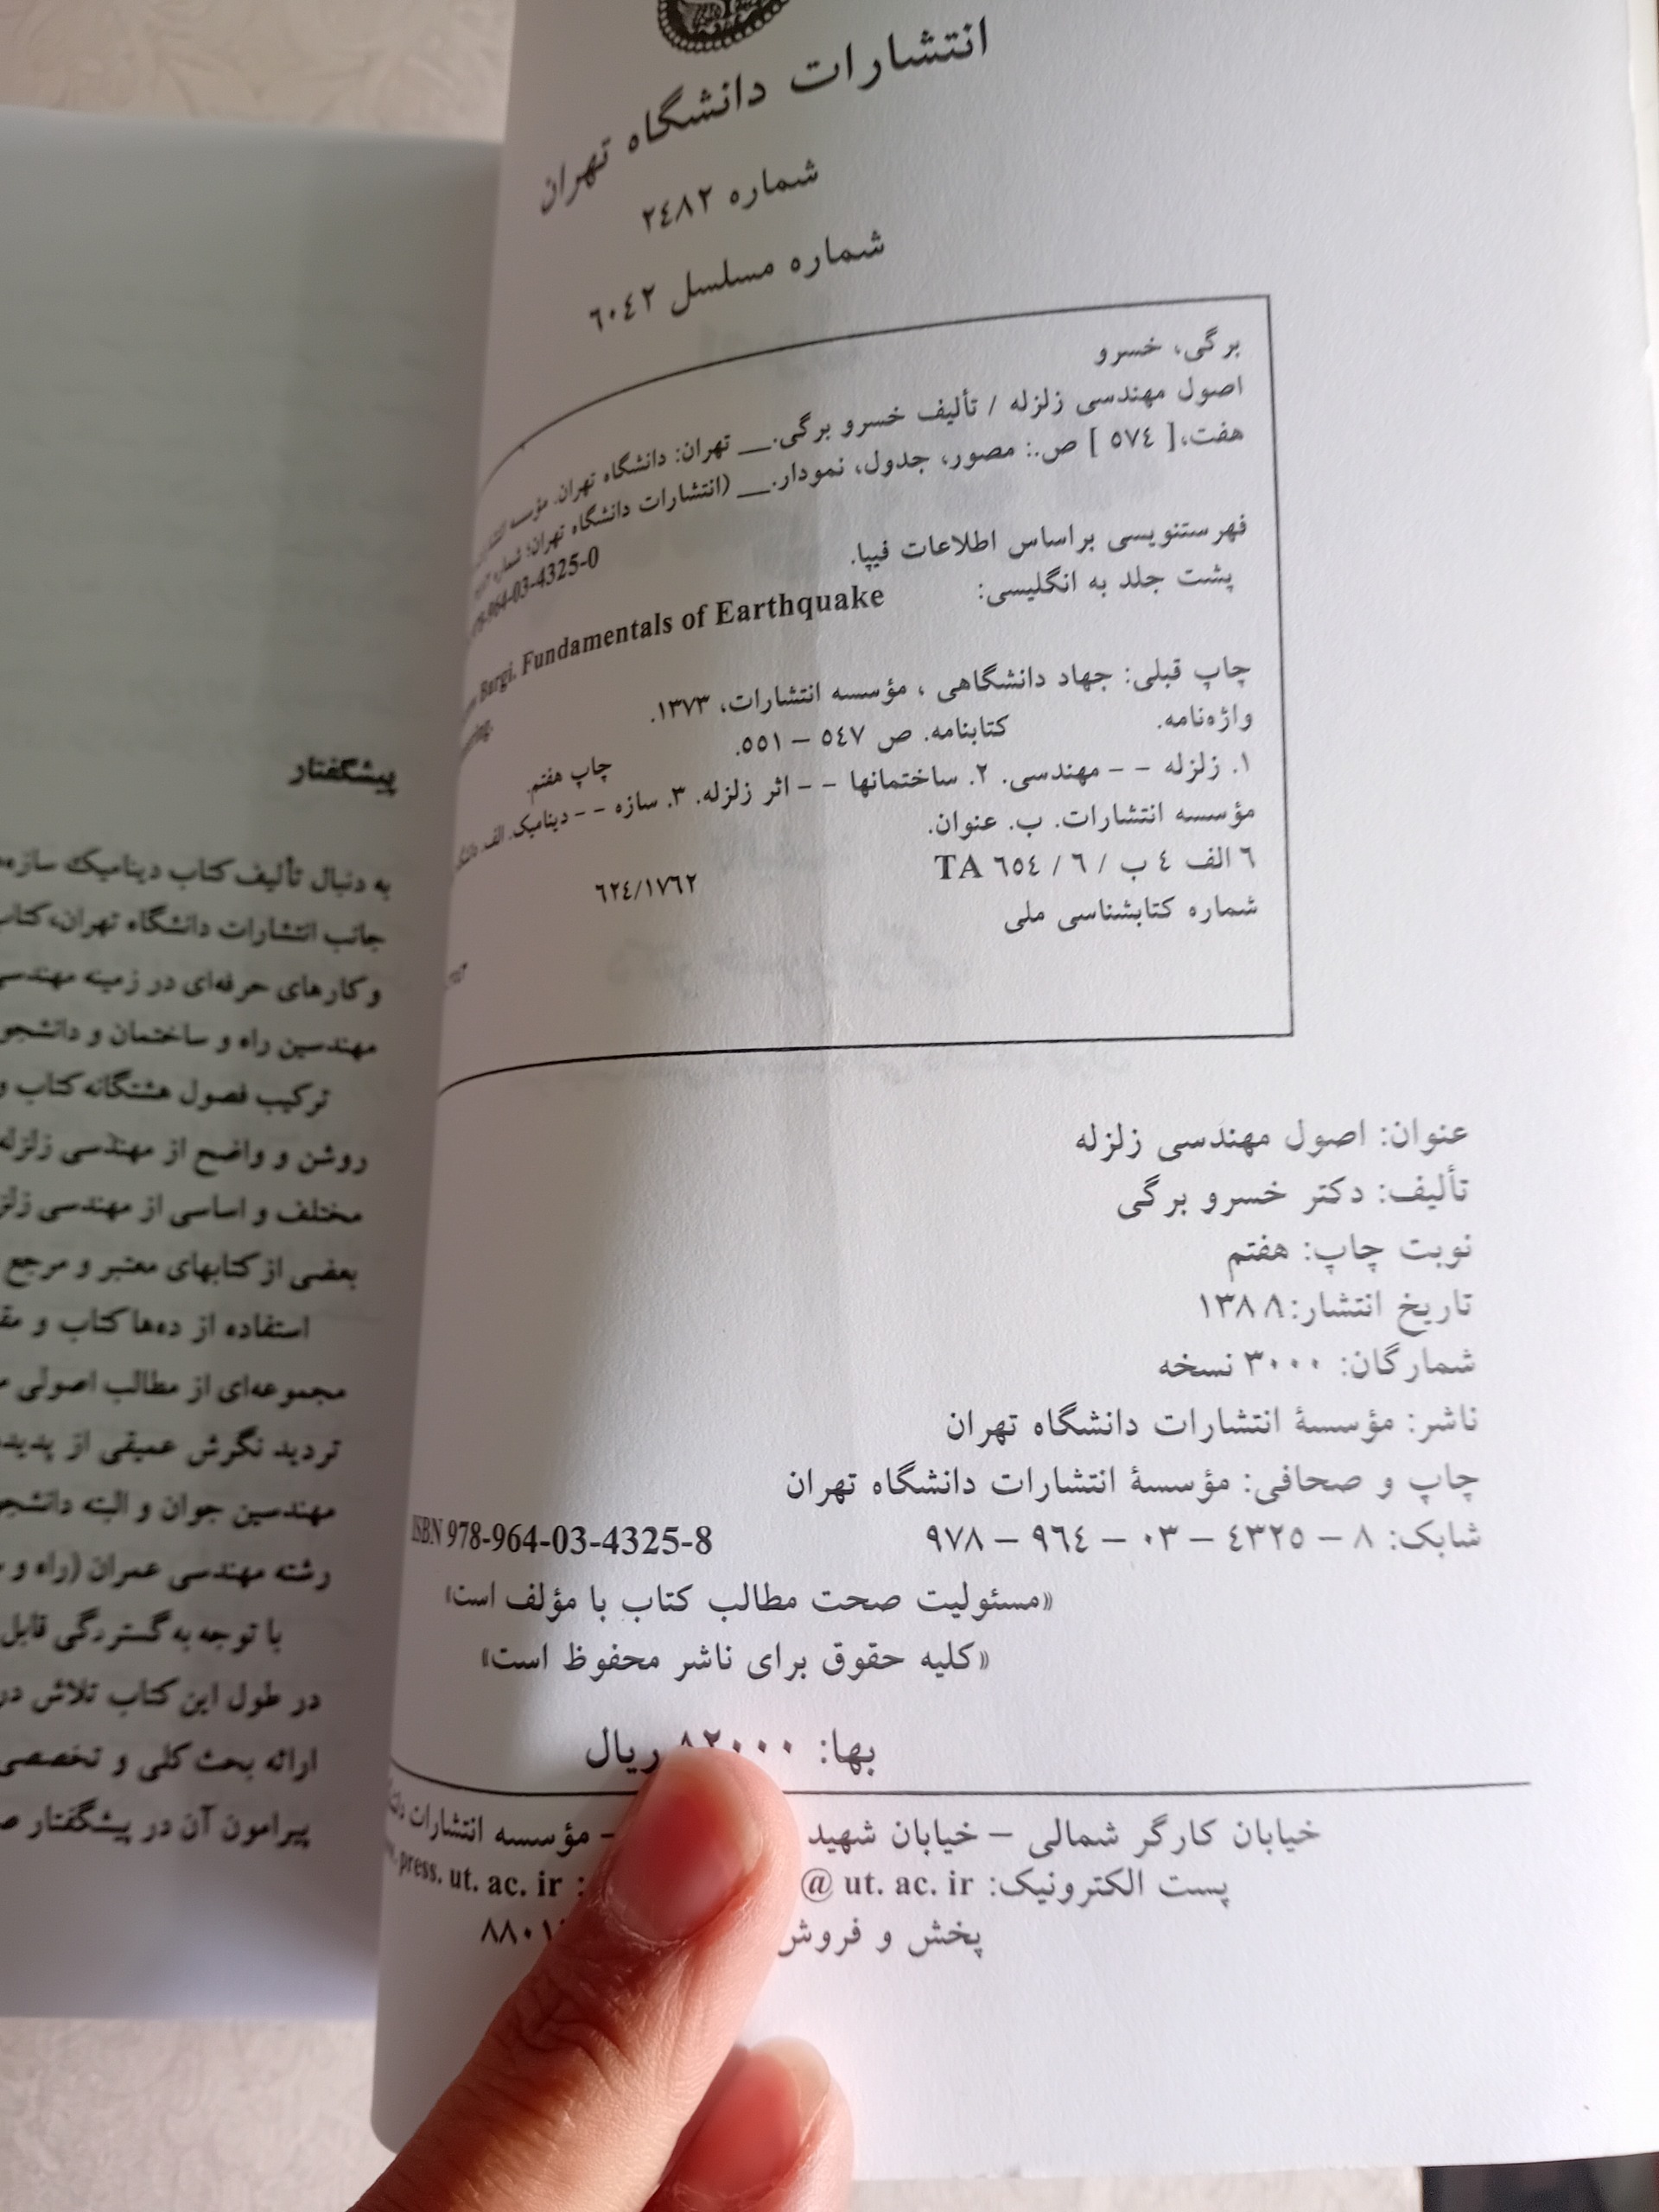 انتشارات دانشگاه تهران
شماره ۲٤۸۲
شماره مسلسل ٦۰٤۲
برگی، خسرو
اصول مهندسی زلزله / تألیف خسرو برگی.__ تهران: دانشگاه تهران. مؤسسه
هفت،[ ٥۷٤ ] ص.: مصور، جدول، نمودار.__ (انتشارات دانشگاه تهران؛ شماره
978-964-03-4325-0
فهرستنویسی براساس اطلاعات فیپا.
پشت جلد به انگلیسی: Bargi. Fundamentals of Earthquake
چاپ قبلی: جهاد دانشگاهی ، مؤسسه انتشارات، ۱۳۷۳.
واژه‌نامه. کتابنامه. ص ٥٤۷ – ٥٥۱.
چاپ هفتم.
۱. زلزله - - مهندسی. ۲. ساختمانها - - اثر زلزله. ۳. سازه - - دینامیک. الف.
مؤسسه انتشارات. ب. عنوان.
٦ الف ٤ ب / ٦ / ٦٥٤ TA ٦۲٤/۱۷٦۲
شماره کتابشناسی ملی
عنوان: اصول مهندسی زلزله
تألیف: دکتر خسرو برگی
نوبت چاپ: هفتم
تاریخ انتشار: ۱۳۸۸
شمارگان: ۳۰۰۰ نسخه
ناشر: مؤسسهٔ انتشارات دانشگاه تهران
چاپ و صحافی: مؤسسهٔ انتشارات دانشگاه تهران
شابک: ۸ – ٤۳۲٥ – ۰۳ – ۹٦٤ – ۹۷۸ ISBN 978-964-03-4325-8
«مسئولیت صحت مطالب کتاب با مؤلف است»
«کلیه حقوق برای ناشر محفوظ است»
بها: ۸۲۰۰۰ ریال
خیابان کارگر شمالی – خیابان شهید – مؤسسه انتشارات
پست الکترونیک: @ ut. ac. ir : press. ut. ac. ir
پخش و فروش ۸۸۰۱
پیشگفتار
به دنبال تألیف کتاب دینامیک سازه
جانب انتشارات دانشگاه تهران، کتاب
و کارهای حرفه‌ای در زمینه مهندسی
مهندسین راه و ساختمان و
ترکیب فصول هشتگانه کتاب و
روشن و واضح از مهندسی زلزله
مختلف و اساسی از مهندسی
بعضی از کتابهای معتبر و مرجع
استفاده از ده‌ها کتاب و
مجموعه‌ای از مطالب اصولی
تردید نگرش عمیقی از
مهندسین جوان و البته
رشته مهندسی عمران (راه و
با توجه به گستردگی قابل
در طول این کتاب تلاش در
ارائه بحث کلی و تخصصی
پیرامون آن در پیشگفتار